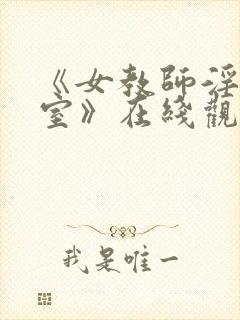 《女教師淫
室》在綫觀
我是唯一